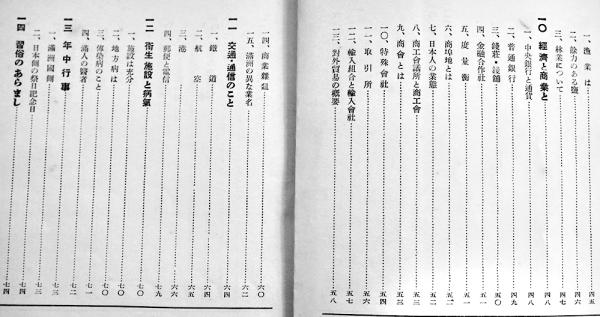 一、漁業は……四五
二、餘力のある鹽……四六
三、林業について……四七
一〇 經濟と商業と
一、中央銀行と通貨……四八
二、普通銀行……四九
三、錢莊・錢舖……五〇
四、金融合作社……五〇
五、度量衡……五一
六、商埠地とは……五一
七、日本人の業態……五二
八、商工會議所と商工會……五二
九、商會とは……五三
一〇、特殊會社……五四
一一、取引所……五六
一二、輸入組合と輸入會社……五七
一三、對外貿易の概要……五八
一四、商業雜組……六〇
一五、滿洲の異な業名……六二
一一 交通・通信のこと……六四
一、鐵道……六四
二、航空……六四
三、港……六六
四、郵便と電信……六六
一二 衞生施設と病氣……七九
一、施設は充分……七〇
二、地方病は……七〇
三、傳染病のこと……七〇
四、滿人の醫者……七一
一三 年中行事……七二
一、滿洲國側……七二
二、日本側の祭日記念日……七三
一四 習俗のあらまし……七四